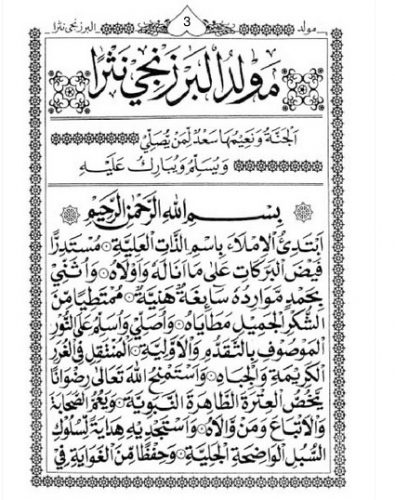 البرزنجي نثرا
3
مولد
مَوْلِدُ الْبَرْزَنْجِي نَثْرًا
اَلْجَنَّةُ وَنَعِيْمُهَا سَعْدٌ لِمَنْ يُصَلِّيْ
وَيُسَلِّمُ وَيُبَارِكُ عَلَيْهِ
بِسْمِ اللهِ الرَّحْمٰنِ الرَّحِيْمِ
اَبْتَدِئُ الْاِمْلَاءَ بِاسْمِ الذَّاتِ الْعَلِيَّةِ ۞ مُسْتَدِرًّا
فَيْضَ الْبَرَكَاتِ عَلٰى مَا اَنَالَهُ وَاَوْلَاهُ ۞ وَاُثَنِّيْ
بِحَمْدٍ مَوَارِدُهُ سَائِغَةٌ هَنِيَّةٌ ۞ مُمْتَطِيًا مِنَ
الشُّكْرِ الْجَمِيْلِ مَطَايَاهُ ۞ وَاُصَلِّيْ وَاُسَلِّمُ عَلَى النُّوْرِ
الْمَوْصُوْفِ بِالتَّقَدُّمِ وَالْاَوَّلِيَّةِ ۞ الْمُنْتَقِلِ فِي الْغُرَرِ
الْكَرِيْمَةِ وَالْجِبَاهِ ۞ وَاَسْتَمْنِحُ اللهَ تَعَالٰى رِضْوَانًا
يَخُصُّ الْعِتْرَةَ الطَّاهِرَةَ النَّبَوِيَّةَ ۞ وَيَعُمُّ الصَّحَابَةَ
وَالْاَتْبَاعَ وَمَنْ وَالَاهُ ۞ وَاَسْتَجْدِيْهِ هِدَايَةً لِسُلُوْكِ
السُّبُلِ الْوَاضِحَةِ الْجَلِيَّةِ ۞ وَحِفْظًا مِنَ الْغَوَايَةِ فِيْ